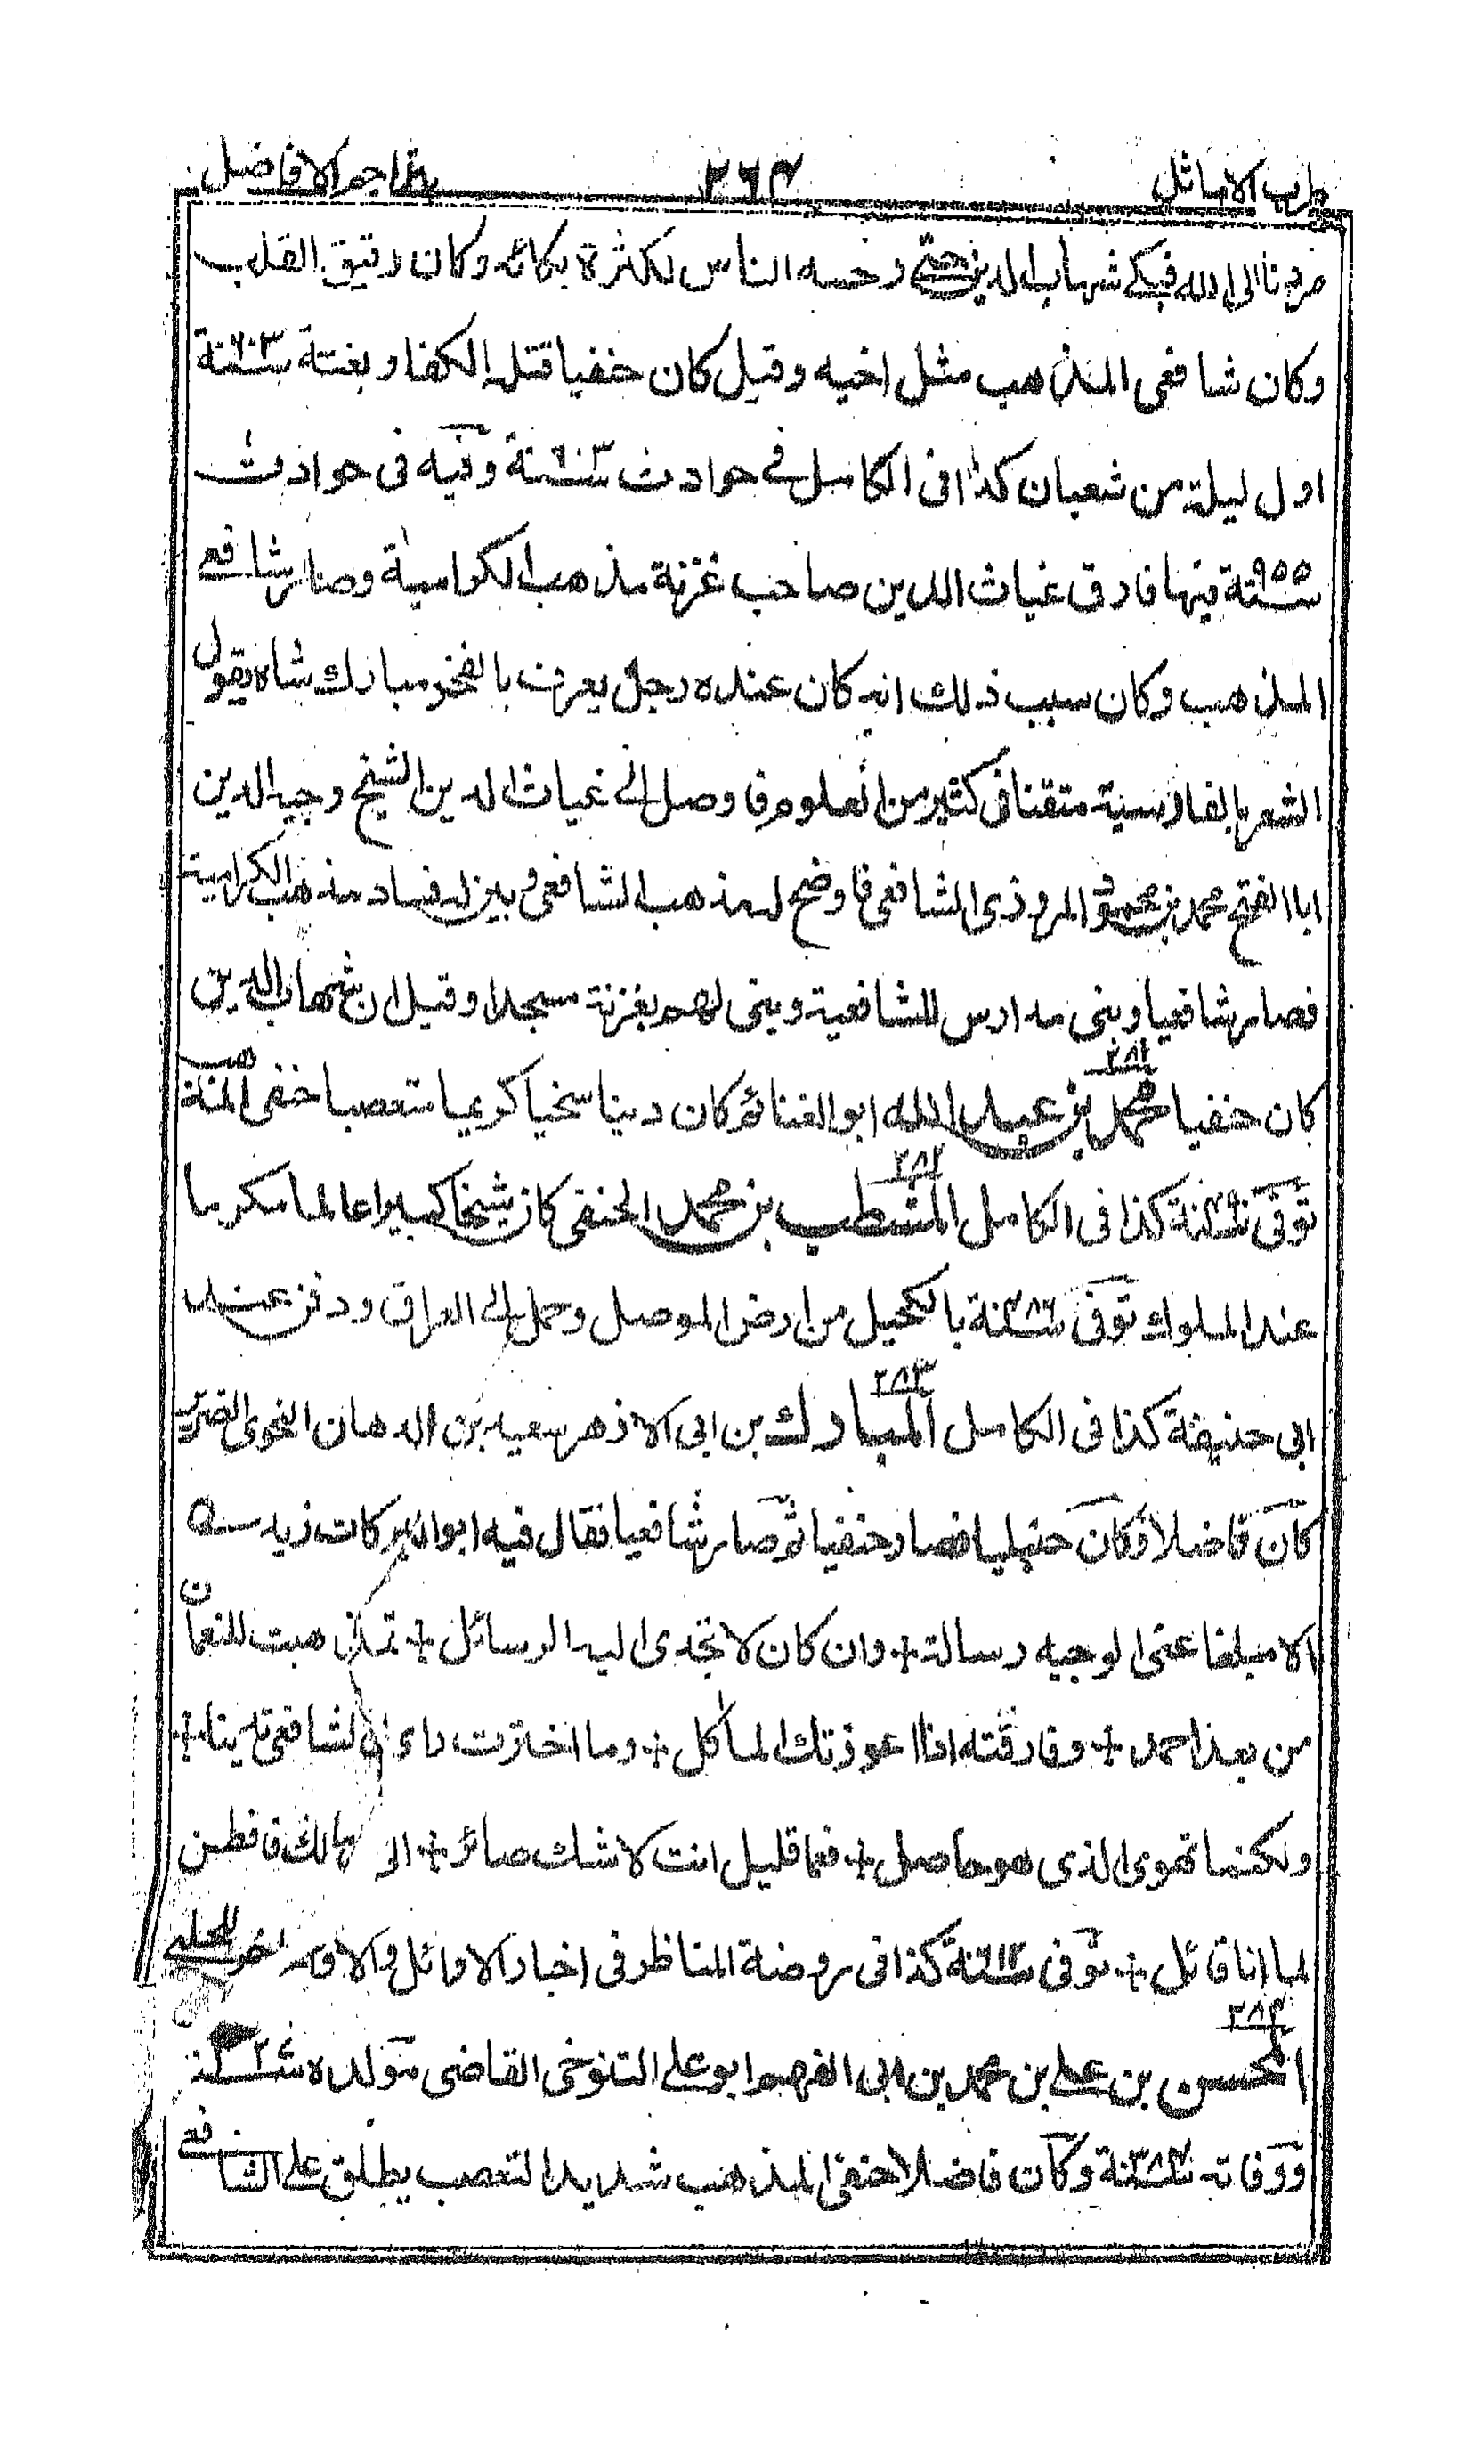 طرب الاماثل ٢٦٤ بتراجم الافاضل
مردنا الى الله فبكى شهاب الدين حتى رحمه الناس لكثرة بكائه وكان رقيق القلب
وكان شافعى المذهب مثل اخيه وقيل كان حنفيا قتله الكفار بغتة سنة ٦٠٣
اول ليلة من شعبان كذا فى الكامل فى حوادث سنة ٦٠٣ وفيه فى حوادث
سنة ٥٩٥ فيها فارق غياث الدين صاحب غزنة مذهب الكرامية وصار شافعى
المذهب وكان سبب ذلك انه كان عنده رجل يعرف بالفخر مبارك شاه يقول
الشعر بالفارسية متقنا فى كثير من العلوم فاوصل الى غياث الدين الشيخ وجيه الدين
ابا الفتح محمد بن محمود المروذى الشافعى فاوضح له مذهب الشافعى وبين له فساد مذهب الكرامية
فصار شافعيا وبنى مدارس للشافعية وبنى لهم بغزنة مسجدا وقيل ان شهاب الدين
كان حنفيا ٢٨١ محمد بن عبد الله ابو الغنائم كان دينا سخيا كريما متعصبا حنفى المذهب
توفى سنة كذا فى الكامل ٢٨٢ المشطب بن محمد الحنفى كان شيخا كبيرا عالما مكرما
عند الملوك توفى سنة ٤٨٦ بالكحيل من ارض الموصل وحمل الى العراق ودفن عند
ابى حنيفة كذا فى الكامل ٢٨٣ المبارك بن ابى الازهر سعيد بن الدهان النحوى الضرير
كان فاضلا وكان حنبليا فصار حنفيا ثم صار شافعيا فقال فيه ابو البركات زيد سه
الا مبلغا عنى الوجيه رسالة + وان كان لا تجدى اليه الرسائل + تمذهبت للنعمان
من بعد احمد + وفارقته اذا اعوزتك المآكل + وما اخترت راى الشافعى تدينا +
ولكنما تهوى الذى هو حاصل + فعما قليل انت لا شك صائر + الى مالك فافطن
لما انا قائل + توفى سنة ٦١٢ كذا فى روضة المناظر فى اخبار الاوائل والاواخر للحلبى
٢٨٤
المحسن بن على بن محمد بن ابى الفهم ابو على التنوخى القاضى مولده سنة
ووفاته سنة ٣٨٤ وكان فاضلا حنفى المذهب شديد التعصب يطلق على الشافعى